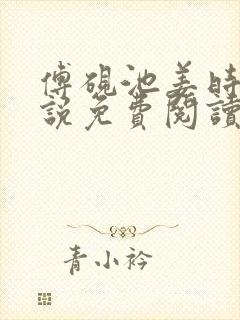 傅硯池姜時
說免費閱讀
青小衿